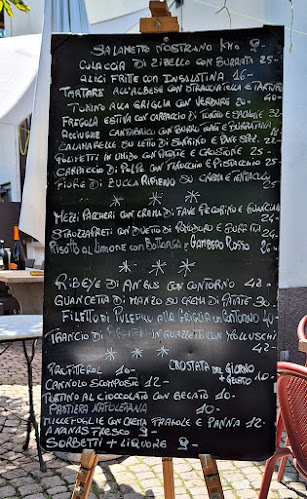 SALAMETTO NOSTRANO KM0 9-
CULACCIA DI ZIBELLO CON BURRATA 25-
ALICI FRITTE CON INSALATINA 16-
TARTARE ALL'ALBESE CON STRACCIATELLA E TARTUFO
TONNO ALLA GRIGLIA CON VERDURE 30- 40-
FRAGOLA ESTIVA CON CARPACCIO DI TONNO E 32-
ACCIUGHE CANTABRICO CON BURRO E
CALAMARELLE SU LETTO DI 32-
POLIPETTI IN UMIDO CON PATATE E CROSTONE 25-
CARPACCIO DI POLPO CON FINOCCHIO E PISTACCHIO 25-
FIORE DI ZUCCA RIPIENO SU CREMA 25
MEZZI PACCHERI CON CREMA DI FAVE PECORINO E GUANCIALE
STROZZAPRETI CON DUETTO DI POMODORO E BURRATA 24-
RISOTTO AL LIMONE CON BOTTARGA E GAMBERO ROSSO 26-
RIBEYE DI ANGUS CON CONTORNO 42-
GUANCETTA DI MANZO SU CREMA DI PATATE 30-
FILETTO DI PULEDRO ALLA GRIGLIA CON CONTORNO 40-
TRANCIO DI IN GUAZZETTO CON MOLLUSCHI 42-
PROFITEROL 10- CROSTATA DEL GIORNO
CANNOLO SCOMPOSTO 12- + GELATO 10-
TORTINO AL CIOCCOLATO CON GELATO 10-
PASTIERA NAPOLETANA 10-
MILLEFOGLIE CON CREMA FRAGOLE E PANNA 12-
ANANAS FRESCO 9-
SORBETTI + LIQUORE 9-